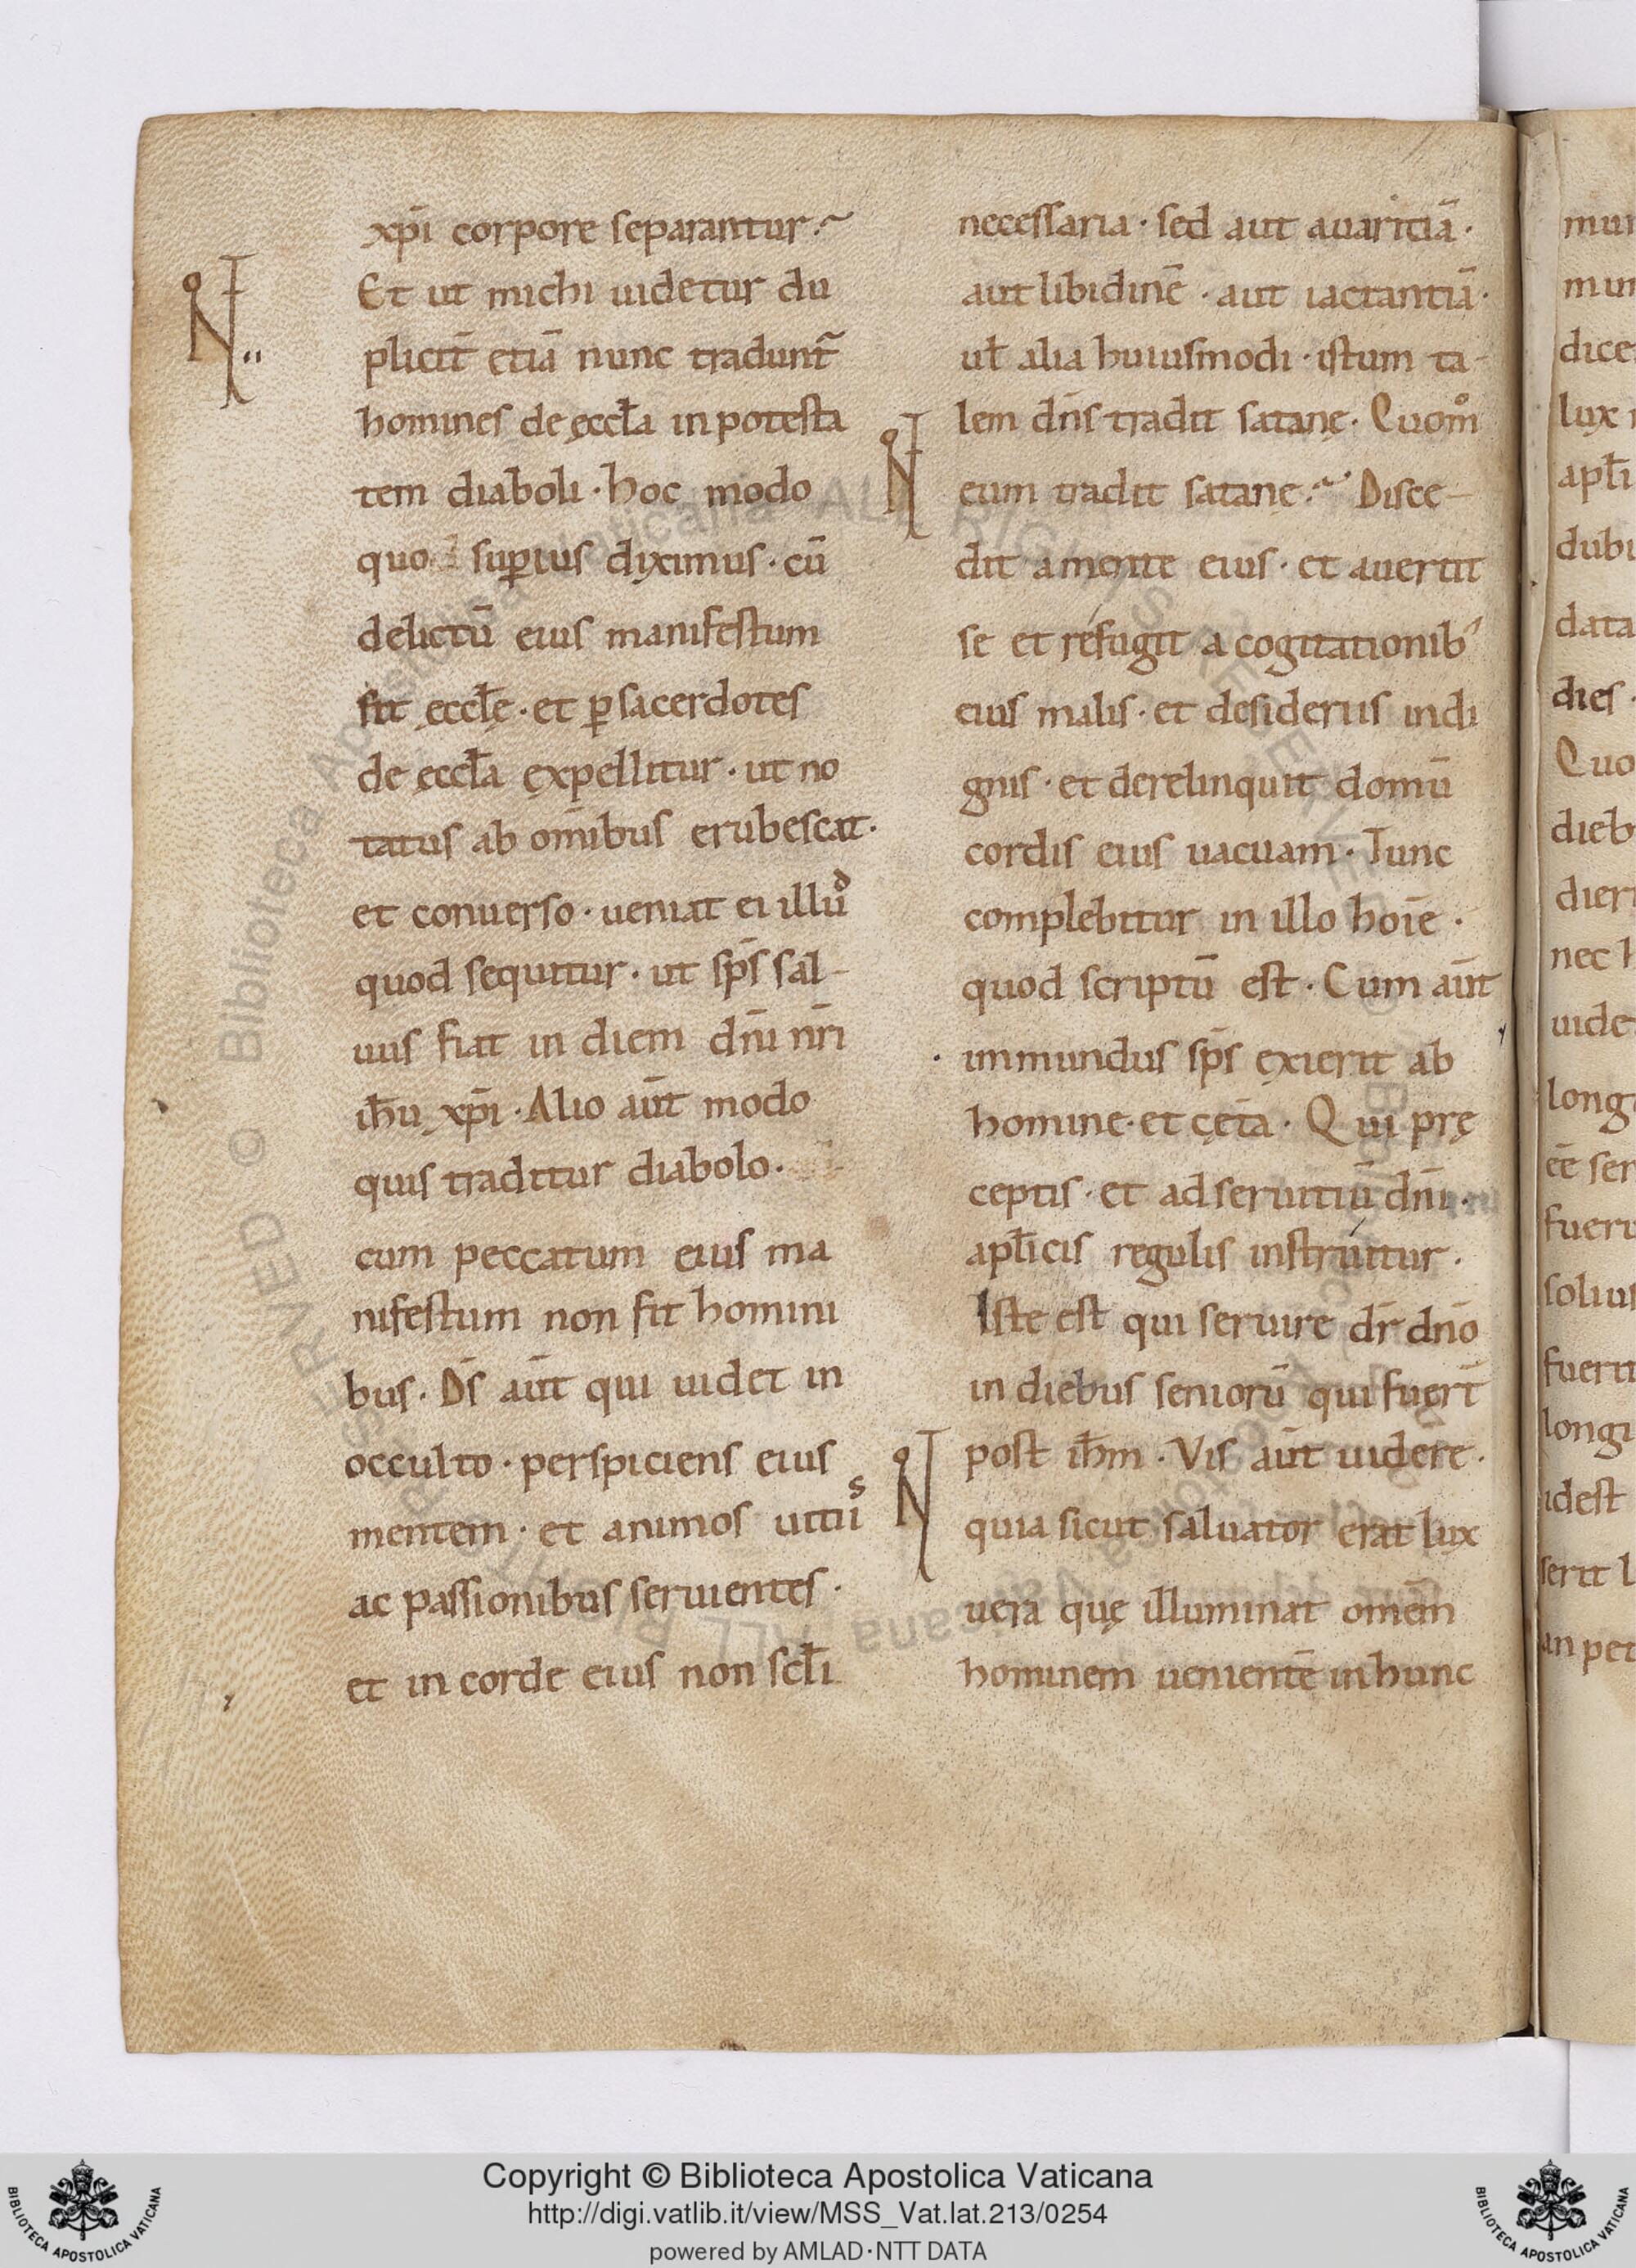 xp̄i corpore separantur.
Et ut michi uidetur du
plicit̄ etiā nunc tradunt̄
homines de ęccl̄a in potesta
tem diaboli · hoc modo
quo sup̱ius diximus · cū
delictū eius manifestum
fit ęccl̄ę · et ꝑ sacerdotes
de ęccl̄a expellitur · ut no
tatus ab om̄ibus erubescat ·
et conuerso · ueniat ei illud
quod sequitur · ut sp̄s sal-
uus fiat in diem dn̄i nr̄i
ih̄u xp̄i · Alio aūt modo
quis traditur diabolo ·
cum peccatum eius ma
nifestum non fit homini
bus · Ds̄ aūt qui uidet in
occulto · perspiciens eius
mentem · et animos uitiis
ac passionibus seruientes ·
et in corde eius non scl̄i
necessaria · sed aut auaritiā ·
aut libidinē · aut iactantiā ·
ul̄ alia huiusmodi · istum ta-
lem dn̄s tradit satanę · Quom̊
eum tradit satanę. Disce-
dit a mente eius · et auertit
se et refugit a cogitationib'
eius malis · et desideriis indi
gnis · et derelinquit domū
cordis eius uacuam · Tunc
complebitur in illo hoīe ·
quod scriptū est · Cum aūt
immundus sp̄s exierit ab
homine · et cęt̄a · Qui prę
ceptis · et ad seruitiū dn̄i ·
apl̄icis regulis instruitur ·
Iste est qui seruire dr̄ dn̄o
in diebus seniorū qui fuer̄t
post ih̄m · Vis aūt uidere ·
quia sicut saluator erat lux
uera quę illuminat om̄em
hominem uenientē in hunc
mun
mun
dice
lux
apl̄i
dubi
data
dies ·
Quo
dieb
dier
nec
uide
long
ēē ser
fueru
solius
fueri
longi
idest
serit l
an pec
Copyright © Biblioteca Apostolica Vaticana
http://digi.vatlib.it/view/MSS_Vat.lat.213/0254
powered by AMLAD·NTT DATA
BIBLIOTECA APOSTOLICA VATICANA
BIBLIOTECA APOSTOLICA VATICANA